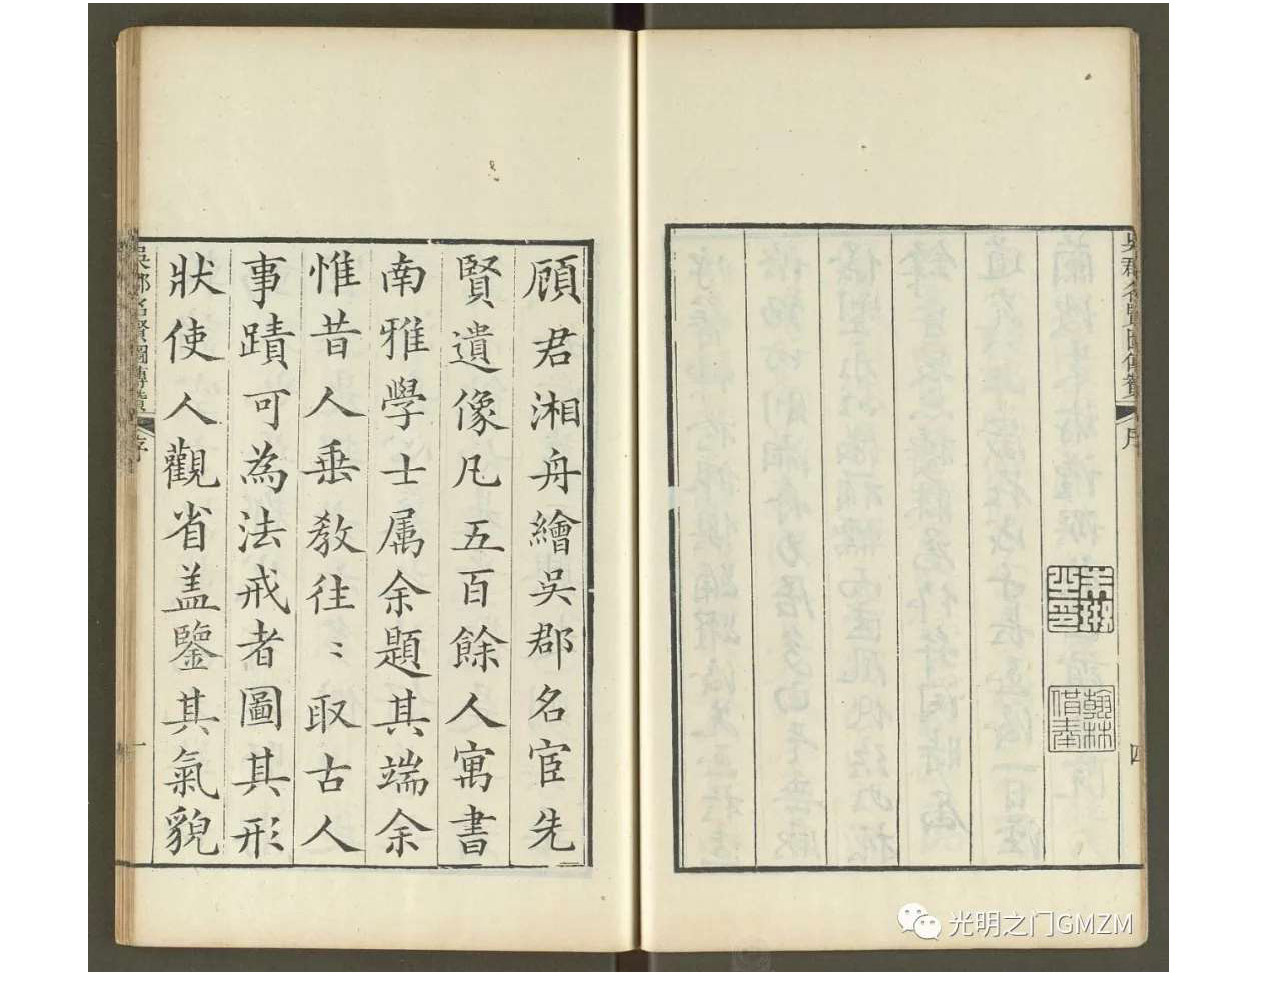 吳郡名賢圖傳贊
序
四
翰林
借本
顧君湘舟繪吳郡名宦先
賢遺像凡五百餘人寓書
南雅學士属余題其端余
惟昔人垂敎往〻取古人
事蹟可為法戒者圖其形
狀使人觀省盖鑒其氣貌
吳郡名賢圖傳贊
序
一
光明之门GMZM